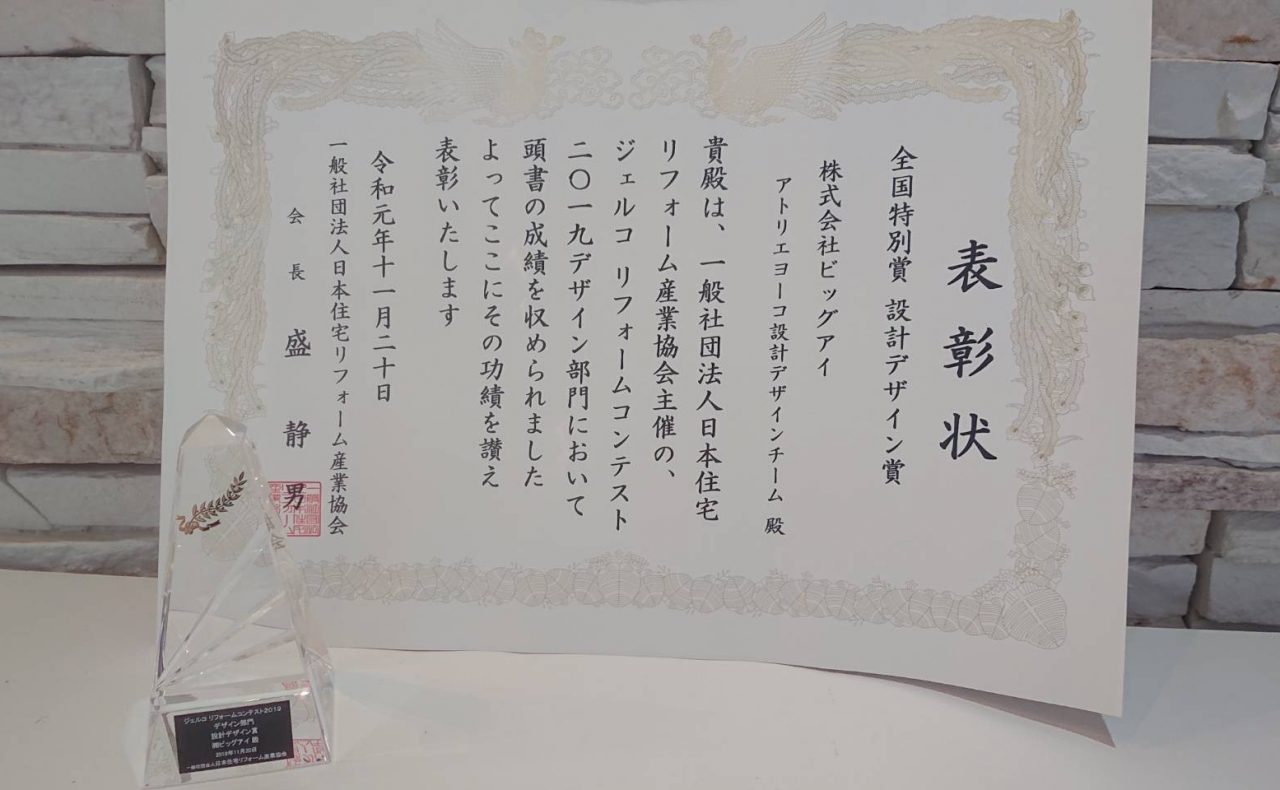 表彰状
全国特別賞 設計デザイン賞
株式会社ビッグアイ
アトリエヨーコ設計デザインチーム 殿
貴殿は、一般社団法人日本住宅
リフォーム産業協会主催の、
ジェルコ リフォームコンテスト
二〇一九デザイン部門において
頭書の成績を収められました
よってここにその功績を讃え
表彰いたします
令和元年十一月二十日
一般社団法人日本住宅リフォーム産業協会
会長 盛 静男
ジェルコ リフォームコンテスト2019
デザイン部門
設計デザイン賞
㈱ビッグアイ 殿
2019年11月20日
一般社団法人日本住宅リフォーム産業協会